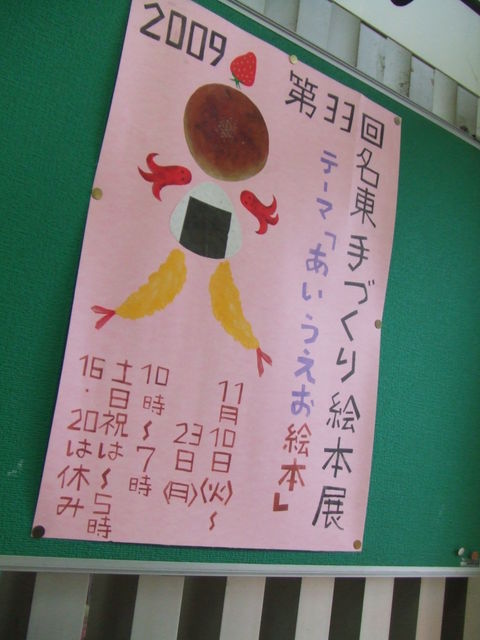 2009
第33回名東手づくり絵本展
テーマ「あいうえお絵本」
11月10日(火)～
23日(月)
10時～7時
土日祝は～5時
16.20は休み